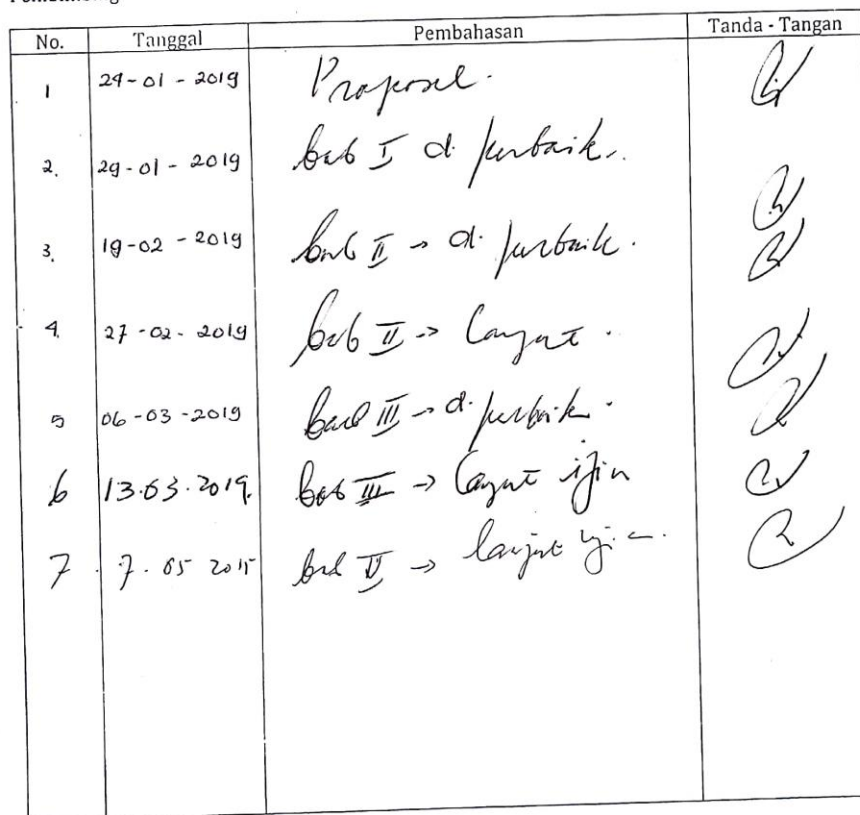 No. Tanggal Pembahasan Tanda - Tangan
1 29-01-2019 Proposel.
2. 29-01-2019 bab I di perbaik.
3. 19-02-2019 bab II -> di perbaik.
4. 27-02-2019 bab II -> Lanjut.
5 06-03-2019 bab III -> di perbaik.
6 13.03.2019. bab III -> Lanjut ijin
7 7.05 2019 bab -> lanjut